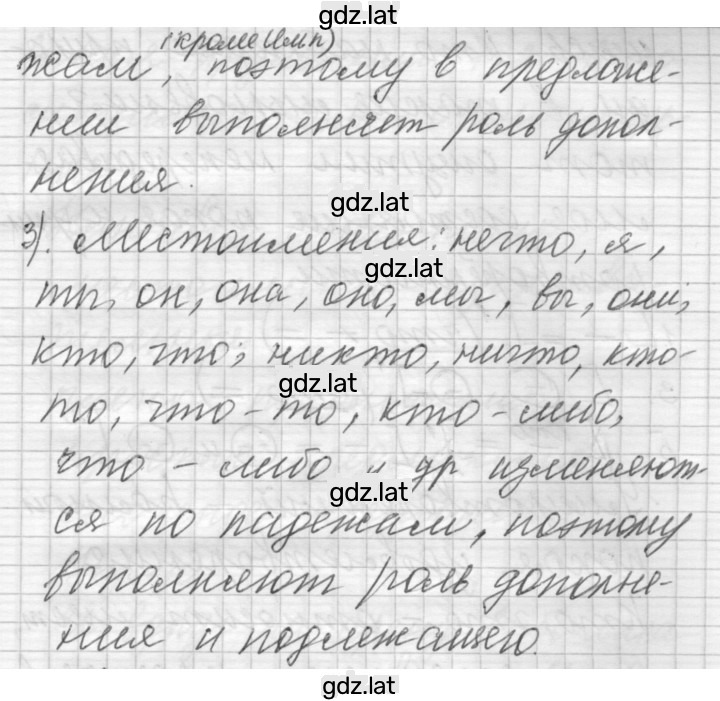 gdz.lat
(кроме И.м.п)
жам, поэтому в предложе-
нии выполняет роль допол-
нения.
gdz.lat
3). Местоимения: нечто, я,
gdz.lat
ты, он, она, оно, мы, вы, они;
кто, что; никто, ничто, кто-
gdz.lat
то, что-то, кто-либо,
что-либо и др изменяют-
gdz.lat
ся по падежам, поэтому
выполняют роль дополне-
ния и подлежащего.
gdz.lat